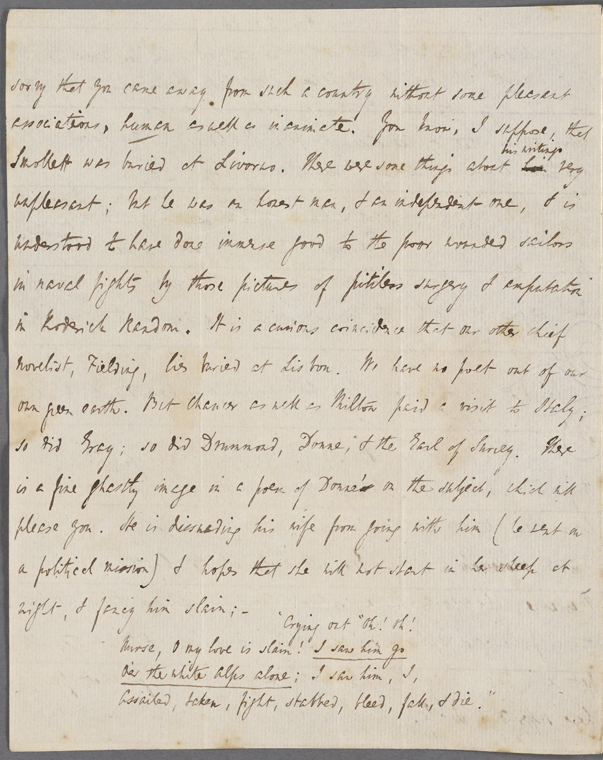 sorry that you came away from such a country without some pleasant
associations, human as well as inanimate. You know, I suppose, that
Smollett was buried at Livorno. There were some things about his writings very
unpleasant; but he was an honest man, & an independent one, & is
understood to have done immense good to the poor wounded sailors
in naval fights by those pictures of pitiless surgery & amputation
in Roderick Random. It is a curious coincidence that our other chief
novelist, Fielding, lies buried at Lisbon. We have no poet out of our
own green earth. But Chaucer as well as Milton paid a visit to Italy;
so did Gray; so did Drummond, Donne, & the Earl of Surrey. There
is a fine ghastly image in a poem of Donne's on the subject, which will
please you. He is dissuading his wife from going with him (he went on
a political mission) & hopes that she will not start in her sleep at
night, & fancy him slain;–
"Crying out "Oh! oh!
Nurse, O my love is slain! I saw him go
O'er the white Alps alone; I saw him, I,
Assailed, taken, fight, stabbed, bleed, fall, & die."